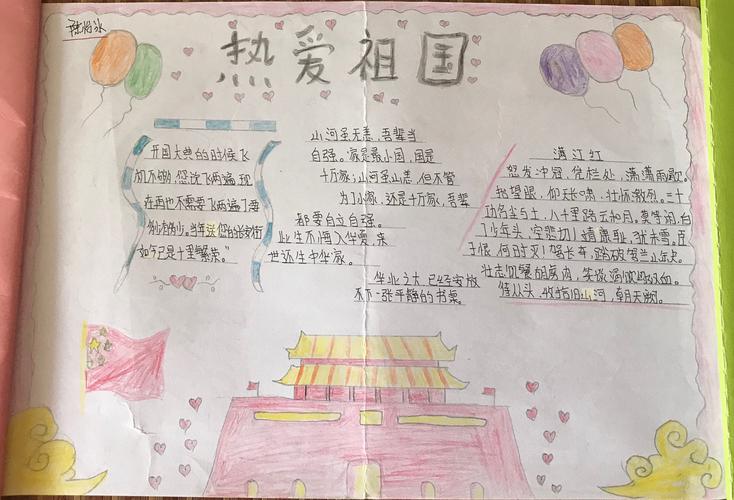 热爱祖国
开国大典的时候飞
机不够您说飞两遍现
在再也不需要飞两遍了要
多少有多少。当年送您的十里长街
如今已是十里繁荣。"
山河虽无恙,吾辈当
自强。家是最小国,国是
十万家;山河虽无恙,但不管
为了小家,还是十万家,吾辈
都要自立自强。
此生不悔入华夏,来
世还生中华家。
华北之大已经安放
不下一张平静的书桌。
满江红
怒发冲冠,凭栏处,潇潇雨歇。
抬望眼,仰天长啸,壮怀激烈。三十
功名尘与土,八千里路云和月。莫等闲,白
了少年头,空悲切!靖康耻,犹未雪。臣
子恨,何时灭!驾长车,踏破贺兰山缺。
壮志饥餐胡虏肉,笑谈渴饮匈奴血。
待从头,收拾旧山河,朝天阙。